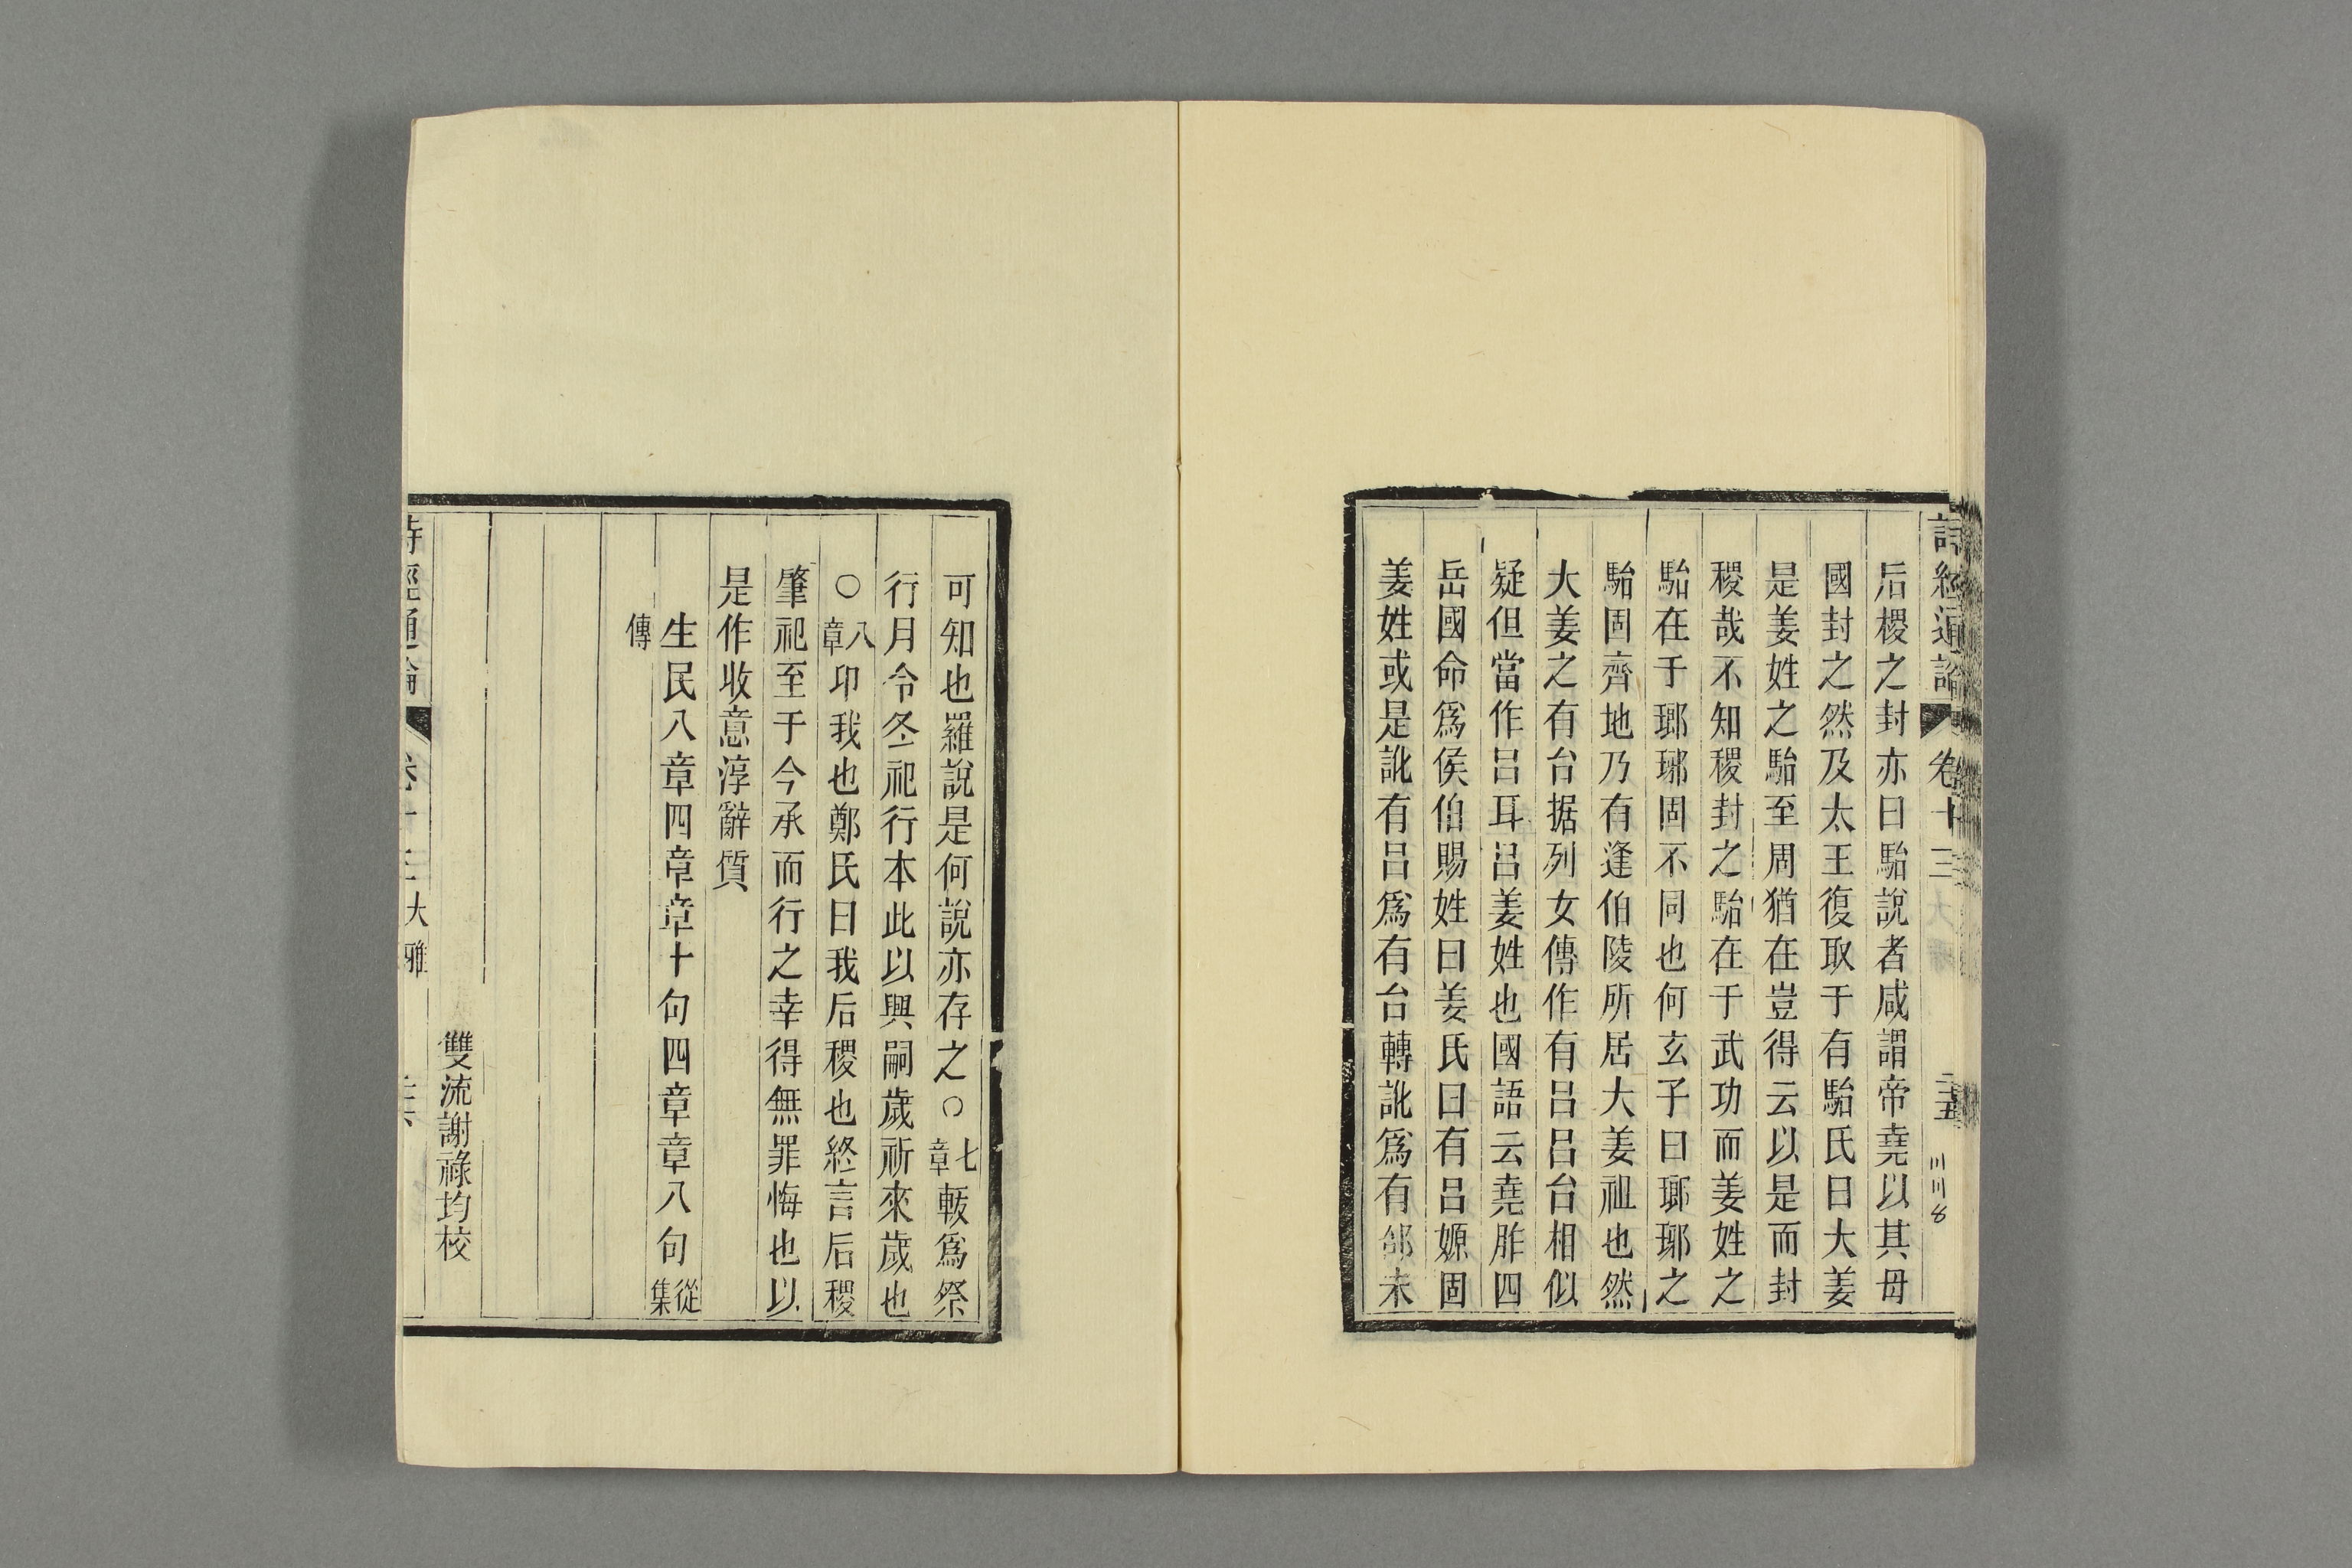 詩經通論 卷十三 大雅 三五
后稷之封亦曰駘說者咸謂帝堯以其毋
國封之然及太王復取于有駘氏曰大姜
是姜姓之駘至周猶在豈得云以是而封
稷哉不知稷封之駘在于武功而姜姓之
駘在于瑯琊固不同也何玄子曰瑯琊之
駘固齊地乃有逢伯陵所居大姜祖也然
大姜之有台据列女傳作有呂呂台相似
疑但當作呂耳呂姜姓也國語云堯胙四
岳國命爲侯伯賜姓曰姜氏曰有呂嫄固
姜姓或是訛有呂爲有台轉訛爲有邰未
可知也羅說是何說亦存之○七章軷爲祭
行月令冬祀行本此以興嗣歲祈來歲也
○八章卬我也鄭氏曰我后稷也終言后稷
肇祀至于今承而行之幸得無罪悔也以
是作收意淳辭質
生民八章四章章十句四章章八句從集
傳
雙流謝祿均校
詩經通論 卷十三 大雅